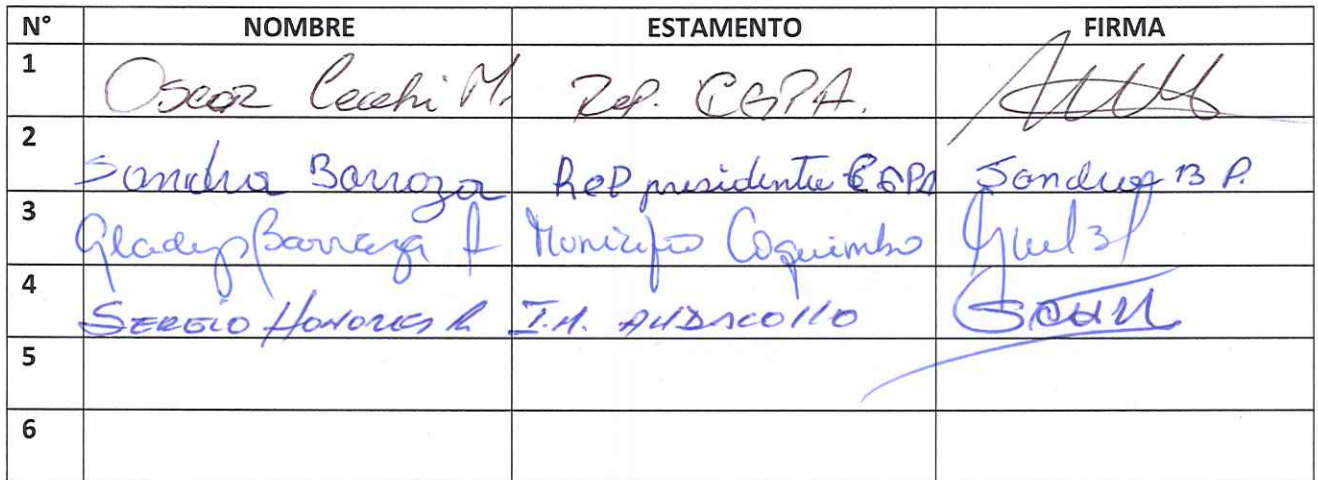 N° NOMBRE ESTAMENTO FIRMA
1 Oscar Cecchi M. Rep. CGPA.
2 Sandra Barroza Rep presidente CGPA Sandra B P.
3 Gladys Barraza A Municipio Coquimbo
4 SERGIO HONORES R. I.M. ANDACOLLO
5
6